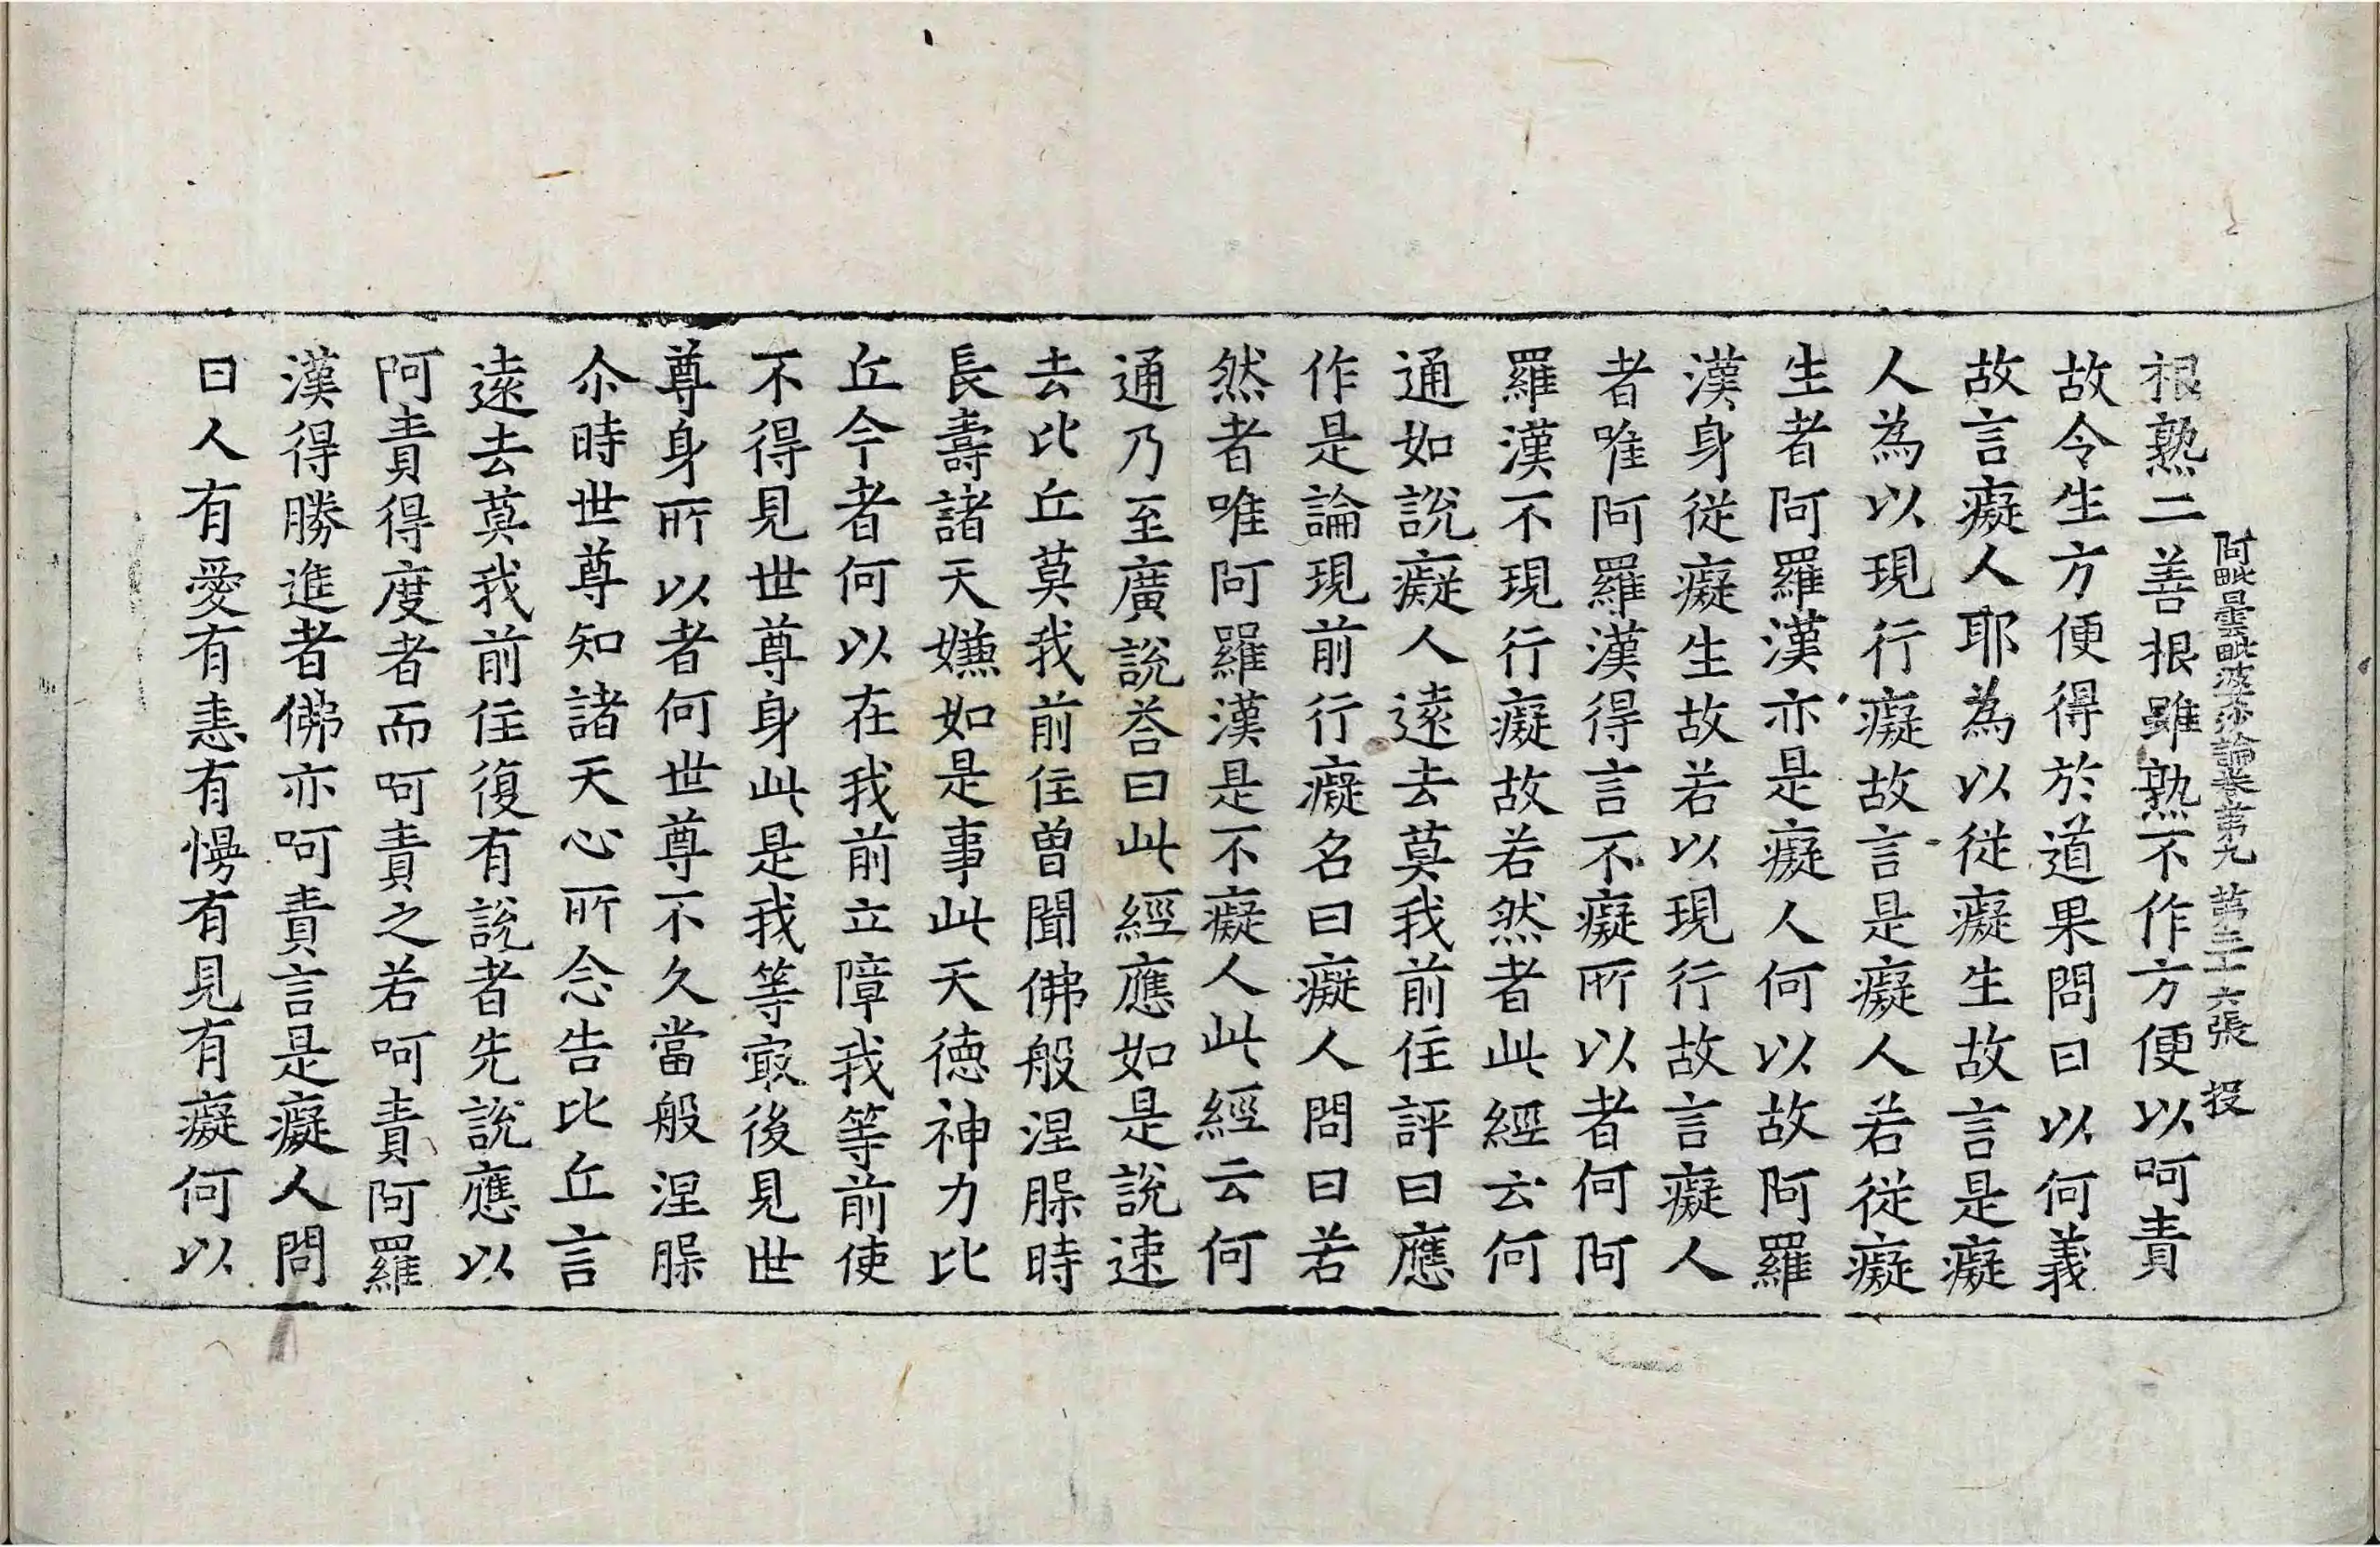 阿毗曇毗婆沙論卷第九 第三十六張 投
根熟二善根雖熟不作方便以呵責
故令生方便得於道果問曰以何義
故言癡人耶為以從癡生故言是癡
人為以現行癡故言是癡人若從癡
生者阿羅漢亦是癡人何以故阿羅
漢身從癡生故若以現行故言癡人
者唯阿羅漢得言不癡所以者何阿
羅漢不現行癡故若然者此經云何
通如說癡人遠去莫我前住評曰應
作是論現前行癡名曰癡人問曰若
然者唯阿羅漢是不癡人此經云何
通乃至廣說荅曰此經應如是說速
去比丘莫我前住曾聞佛般涅槃時
長壽諸天嫌如是事此天德神力比
丘今者何以在我前立障我等前使
不得見世尊身此是我等㝡後見世
尊身所以者何世尊不久當般涅槃
尒時世尊知諸天心所念告比丘言
遠去莫我前住復有說者先說應以
呵責得度者而呵責之若呵責阿羅
漢得勝進者佛亦呵責言是癡人問
曰人有愛有恚有慢有見有癡何以